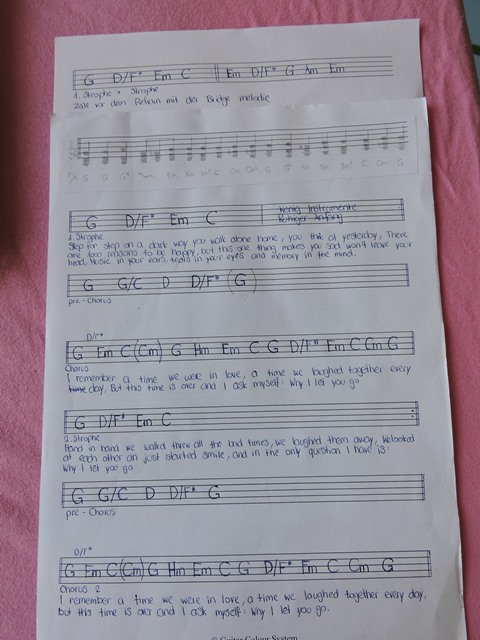 G D/F# Em C Em D/F# G Am Em
1. Strophe + Strophe
Zeile vor dem Refrain mit der Bridge melodie
G D/F# Em C wenig Instrumente
Ruhiger Anfang
1. Strophe
Step for step on a dark way you walk alone home, you think of yesterday, There
are 1000 reasons to be happy, but this one thing makes you sad won't leave your
head, Music in your ears, tears in your eyes and memory in the mind.
G G/C D D/F# (G)
pre-Chorus
D/F#
G Em C (Cm) G Hm Em C G D/F# Em C Cm G
Chorus
I remember a time we were in love, a time we laughed together every
time day, But this time is over and I ask myself: Why I let you go
G D/F# Em C
2. Strophe
Hand in hand we walked threw all the bad times, we laughed them away, We looked
at each other an just started smile, and in the only question I have is:
Why I let you go
G G/C D D/F# G
pre-Chorus
D/F#
G Em C (Cm) G Hm Em C G D/F# Em C Cm G
Chorus 2
I remember a time we were in love, a time we laughed together every day,
but this time is over and I ask myself: Why I let you go.
© Guitar Colour System